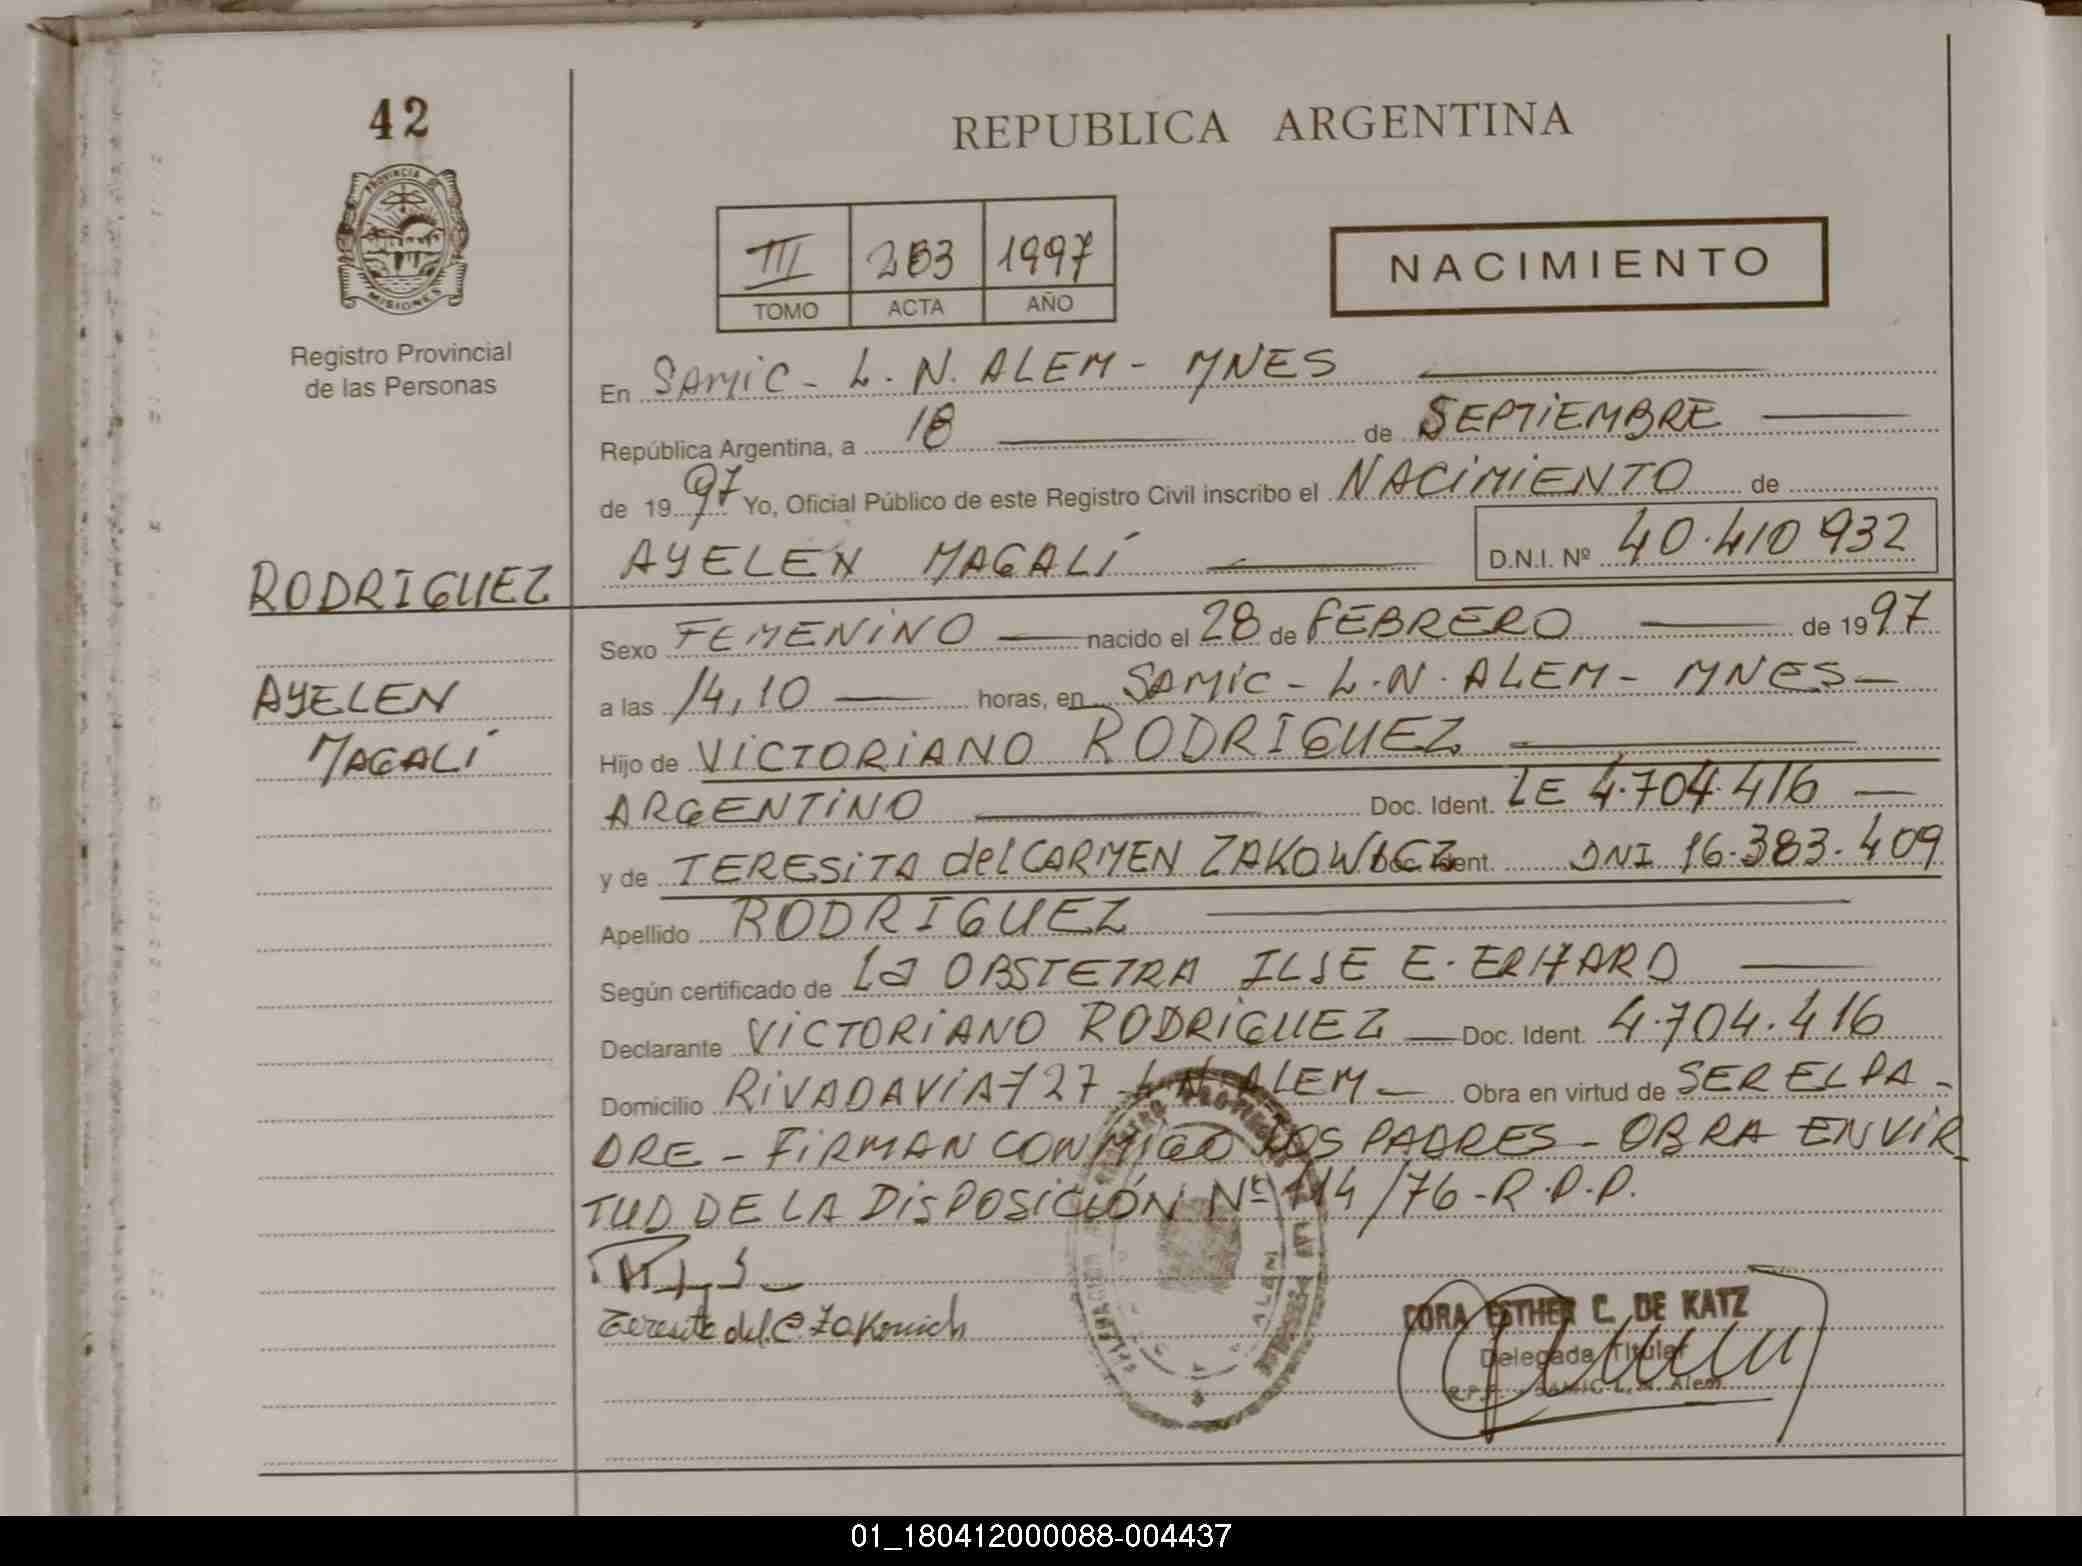 42
REPUBLICA ARGENTINA
PROVINCIA DE
MISIONES
Registro Provincial
de las Personas
III 283 1997
TOMO ACTA AÑO
NACIMIENTO
En SAMIC - L. N. ALEM - MNES
República Argentina, a 18 de SEPTIEMBRE
de 1997 Yo, Oficial Público de este Registro Civil inscribo el NACIMIENTO de
AYELEN MAGALÍ D.N.I. Nº 40.410 932
RODRIGUEZ
AYELEN
MAGALÍ
Sexo FEMENINO nacido el 28 de FEBRERO de 1997
a las 14,10 horas, en SAMIC - L.N. ALEM - MNES -
Hijo de VICTORIANO RODRIGUEZ
ARGENTINO Doc. Ident. LE 4.704.416
y de TERESITA del CARMEN ZAKOWICZ Doc. Ident. DNI 16.383.409
Apellido RODRIGUEZ
Según certificado de La OBSTETRA ILSE E. ERHARD
Declarante VICTORIANO RODRIGUEZ Doc. Ident. 4.704.416
Domicilio RIVADAVIA 727 - L N ALEM - Obra en virtud de SER EL PA -
DRE - FIRMAN CONMIGO LOS PADRES - OBRA EN VIR
TUD DE LA DISPOSICIÓN Nº 114/76 - R.P.P.
Teresita del C. Zakowich
CORA ESTHER C. DE KATZ
Delegada Titular
R.P.P. - SAMIC L. N. Alem
ALEM
01_180412000088-004437